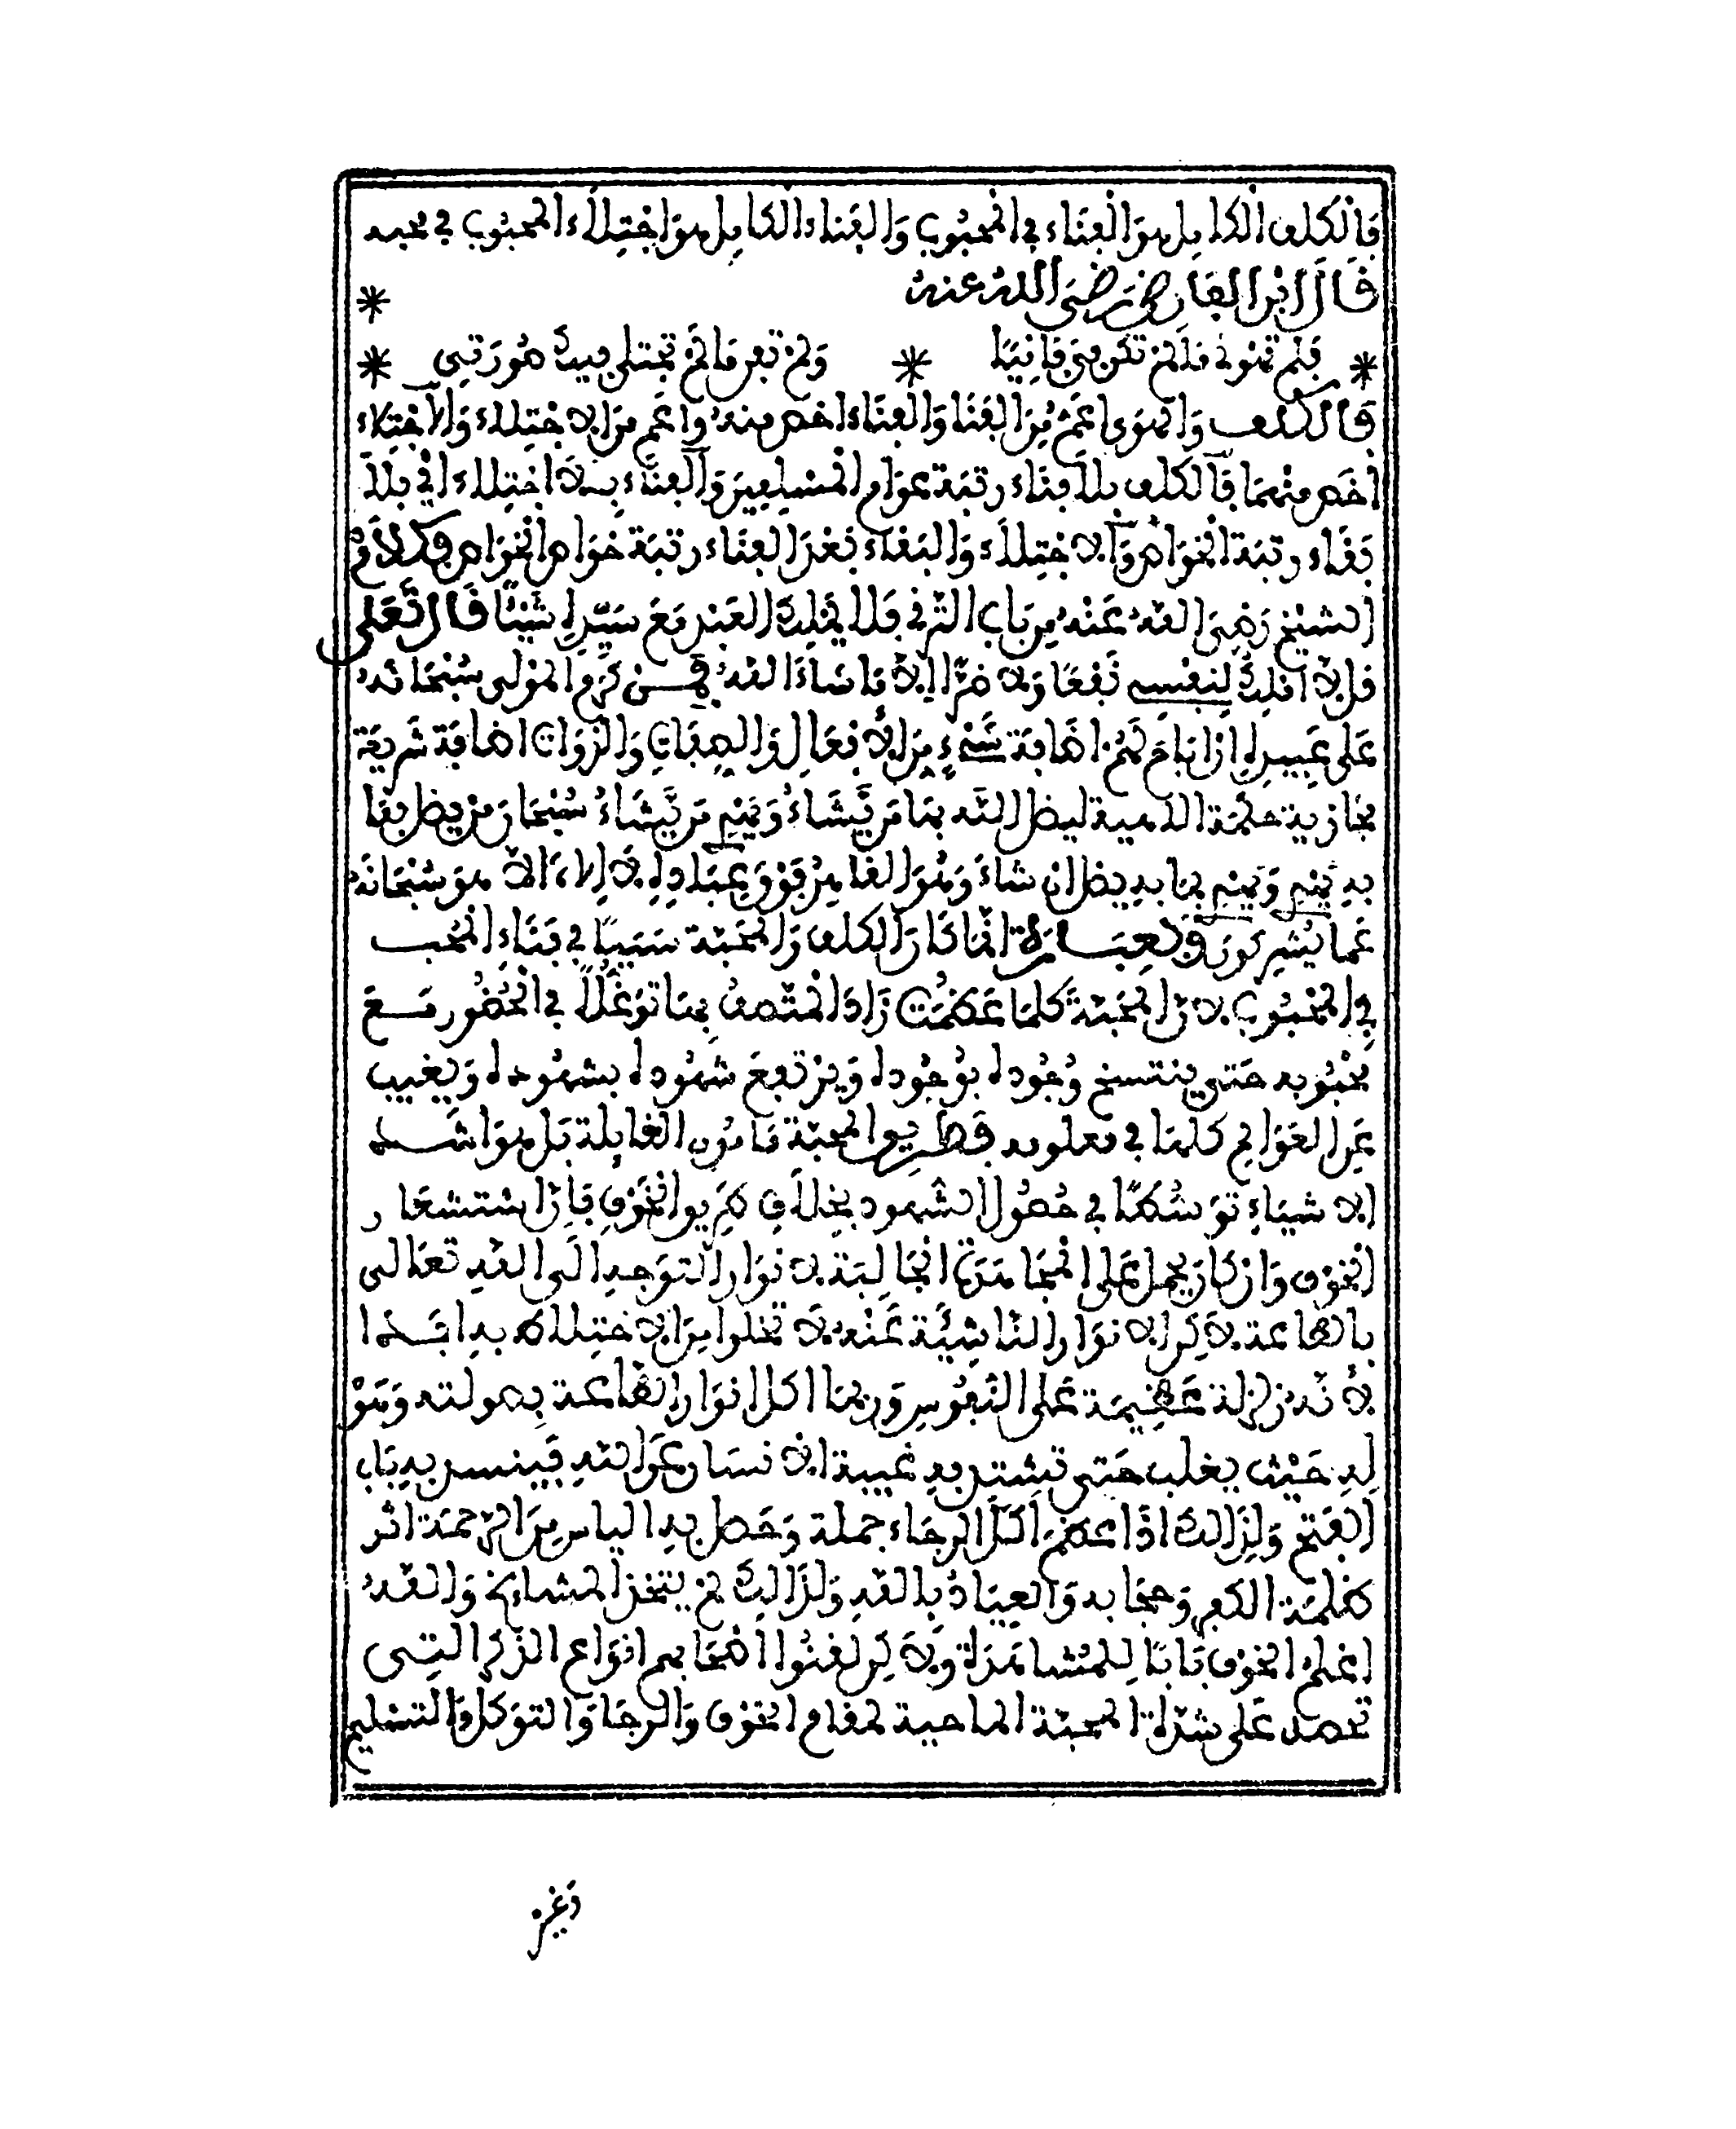 فَالْكَلَفُ الْكَامِلُ هُوَ الْفَنَاءُ فِي الْمَحْبُوبِ وَالْفَنَاءُ الْكَامِلُ هُوَ اجْتِلَاءُ الْمَحْبُوبِ فِي محبه
قَالَ ابْنُ الْفَارِضِ رَضِيَ اللَّهُ عَنْهُ *
* فَلَمْ تَهْوَنِي مَا لَمْ تَكُنْ فِيَّ فَانِيًا * وَلَمْ تَفْنَ مَا لَمْ تُجْتَلَى فِيكَ صُورَتِي *
فَالْكَلَفُ وَالْهَوَى أَعَمُّ مِنَ الْفَنَا وَالْفَنَاءُ اخص منه وَاعَم مِنَ الاجْتِلَاء وَالاجْتِلَاء
أَخَص مِنْهُمَا فَالْكَلَف بِلَا فِنَاء رتبَة عوَام الْمسْلِمِينَ وَالْفنَاء بِلَا اجتِلَاء اي بلا
بَقَاء رتبَة الْخوَاص وَالاجْتِلَاء وَالْبَقَاء بَعْدَ الْفنَاء رتبَة خوَاص الْخوَاص فكلام
الشيْخ رَضِيَ اللَّهُ عَنْهُ مِن بَاب التَّرَقِّي فَلَا يَمْلِك الْعَبْد مَعَ سَيِّدِهِ شَيْئًا قَالَ تَعَلَى
قل لا أَمْلِكُ لِنَفْسِي نَفْعًا وَلَا ضَرًّا إِلَّا مَا شَاءَ اللَّهُ فَمِنْ كَرَمِ الْمَوْلَى سُبْحَانَهُ
عَلَى عَبِيدِهِ ان ابَاحَ لَهُمْ اضَافَة شَيْءٍ مِنَ الأَفْعَالِ وَالصِّفَاتِ وَالذَّوَاتِ اضَافَة شَرِيعَة
مَجَازِية حكْمَة الاهية ليضل اللَّه بِهَا مَن يَّشَاءُ وَيَهْدِي مَن يَّشَاءُ سُبْحَانَ مَنْ يضل بِمَا
به يَهْدِي وَيَهْدِي بِمَا به يضل ان شَاءَ وَهُوَ الْقَاهِرُ فَوْقَ عِبَادِهِ لَا إِلَهَ الَّا هوَ سُبْحَانَهُ
عَمَّا يُشْرِكُونَ وَبِعِبَارَة انمَا كَانَ الْكلف وَالْمحَبَّة سَبَبًا فِي فَنَاءِ الْمُحِب
فِي الْمَحْبُوبِ لان الْمَحَبَّةَ كلمَا عَظُمَت زَادَ الْمُتَّصِفُ بِهَا تَوَغُّلًا فِي الْحُضُور مَعَ
مَحْبُوبه حَتى ينتسخ وُجُوده بِوُجُوده وَيَرْتَفِعَ شهُوده بشهُوده وَيغيب
عَنِ الْعَوَالِم كلهَا في معلومه فطريق المحبّة مَامُون الغَايِلة بَل هوَ اشَد
الاشيَاءِ تَوَسُّطًا في حُصُولِ الشّهود بِخِلَافِ طَرِيق الْخَوْفِ فَإِن اسْتشعَار
الْخَوْف وَان كَان يحمل عَلى الْمجَاهَدَة الْجَالِبَة لانوَار التوَجه الَى اللهِ تَعَالى
بالطاعة لَاكِن الانوَار النّاشِئَة عَنْه لَا تخلوا مِن الاختلال به ابَدا
لأنَّه زلزلة عَظِيمَة عَلى النُّفُوس وَربمَا اكل انوَار الطّاعة بصولته وَهوَ
لِه حَيْث يغلب حَتى تشتد به غيبة الانسَان عَن اللهِ فينسد به بَاب
الفَتح وَلِذَالك اذَا عظم اكل الرجَاء جملة وَحَصل به الياس مِنَ الرّحمَة اثر
كظلمَة الكفر وَحجَابه وَالعِيَاذُ بِاللهِ وَلذَالِكَ لم يتخذ المشايخ وَاللهُ
اعْلم الخوْف بَابًا لِلمُشَاهَدَة وَلاكِن لَقَّنُوا اصْحَابهم انوَاع الذّكر التِي
تحصد عَلى شدّة المحبّة الماحية لمقام الخوْف وَالرجَا وَالتوَكل وَالتسْليم
وَغير